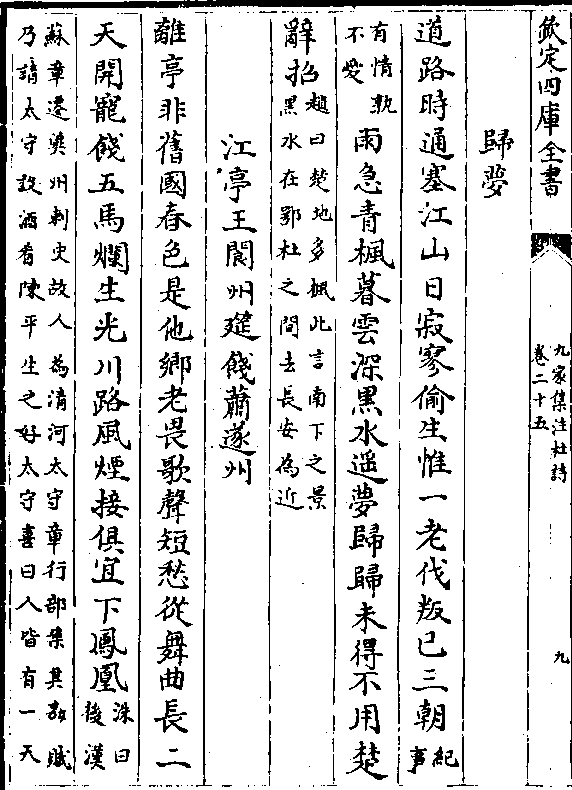 欽定四庫全書
九家集注杜詩
卷二十五
九
歸夢
道路時通塞江山日寂寥偷生惟一老伐叛已三朝紀事
有情孰不愛雨急青楓暮雲深黒水遥夢歸歸未得不用楚
辭招趙曰楚地多楓此言南下之景黒水在鄠杜之間去長安為近
江亭王閬州筵餞蕭遂州
離亭非舊國春色是他鄉老畏歌聲短愁從舞曲長二
天開寵餞五馬爛生光川路風煙接俱宜下鳳凰洙曰後漢
蘇章遷冀州刺史故人為清河太守章行部案其姦贓
乃請太守設酒肴陳平生之好太守喜曰人皆有一天